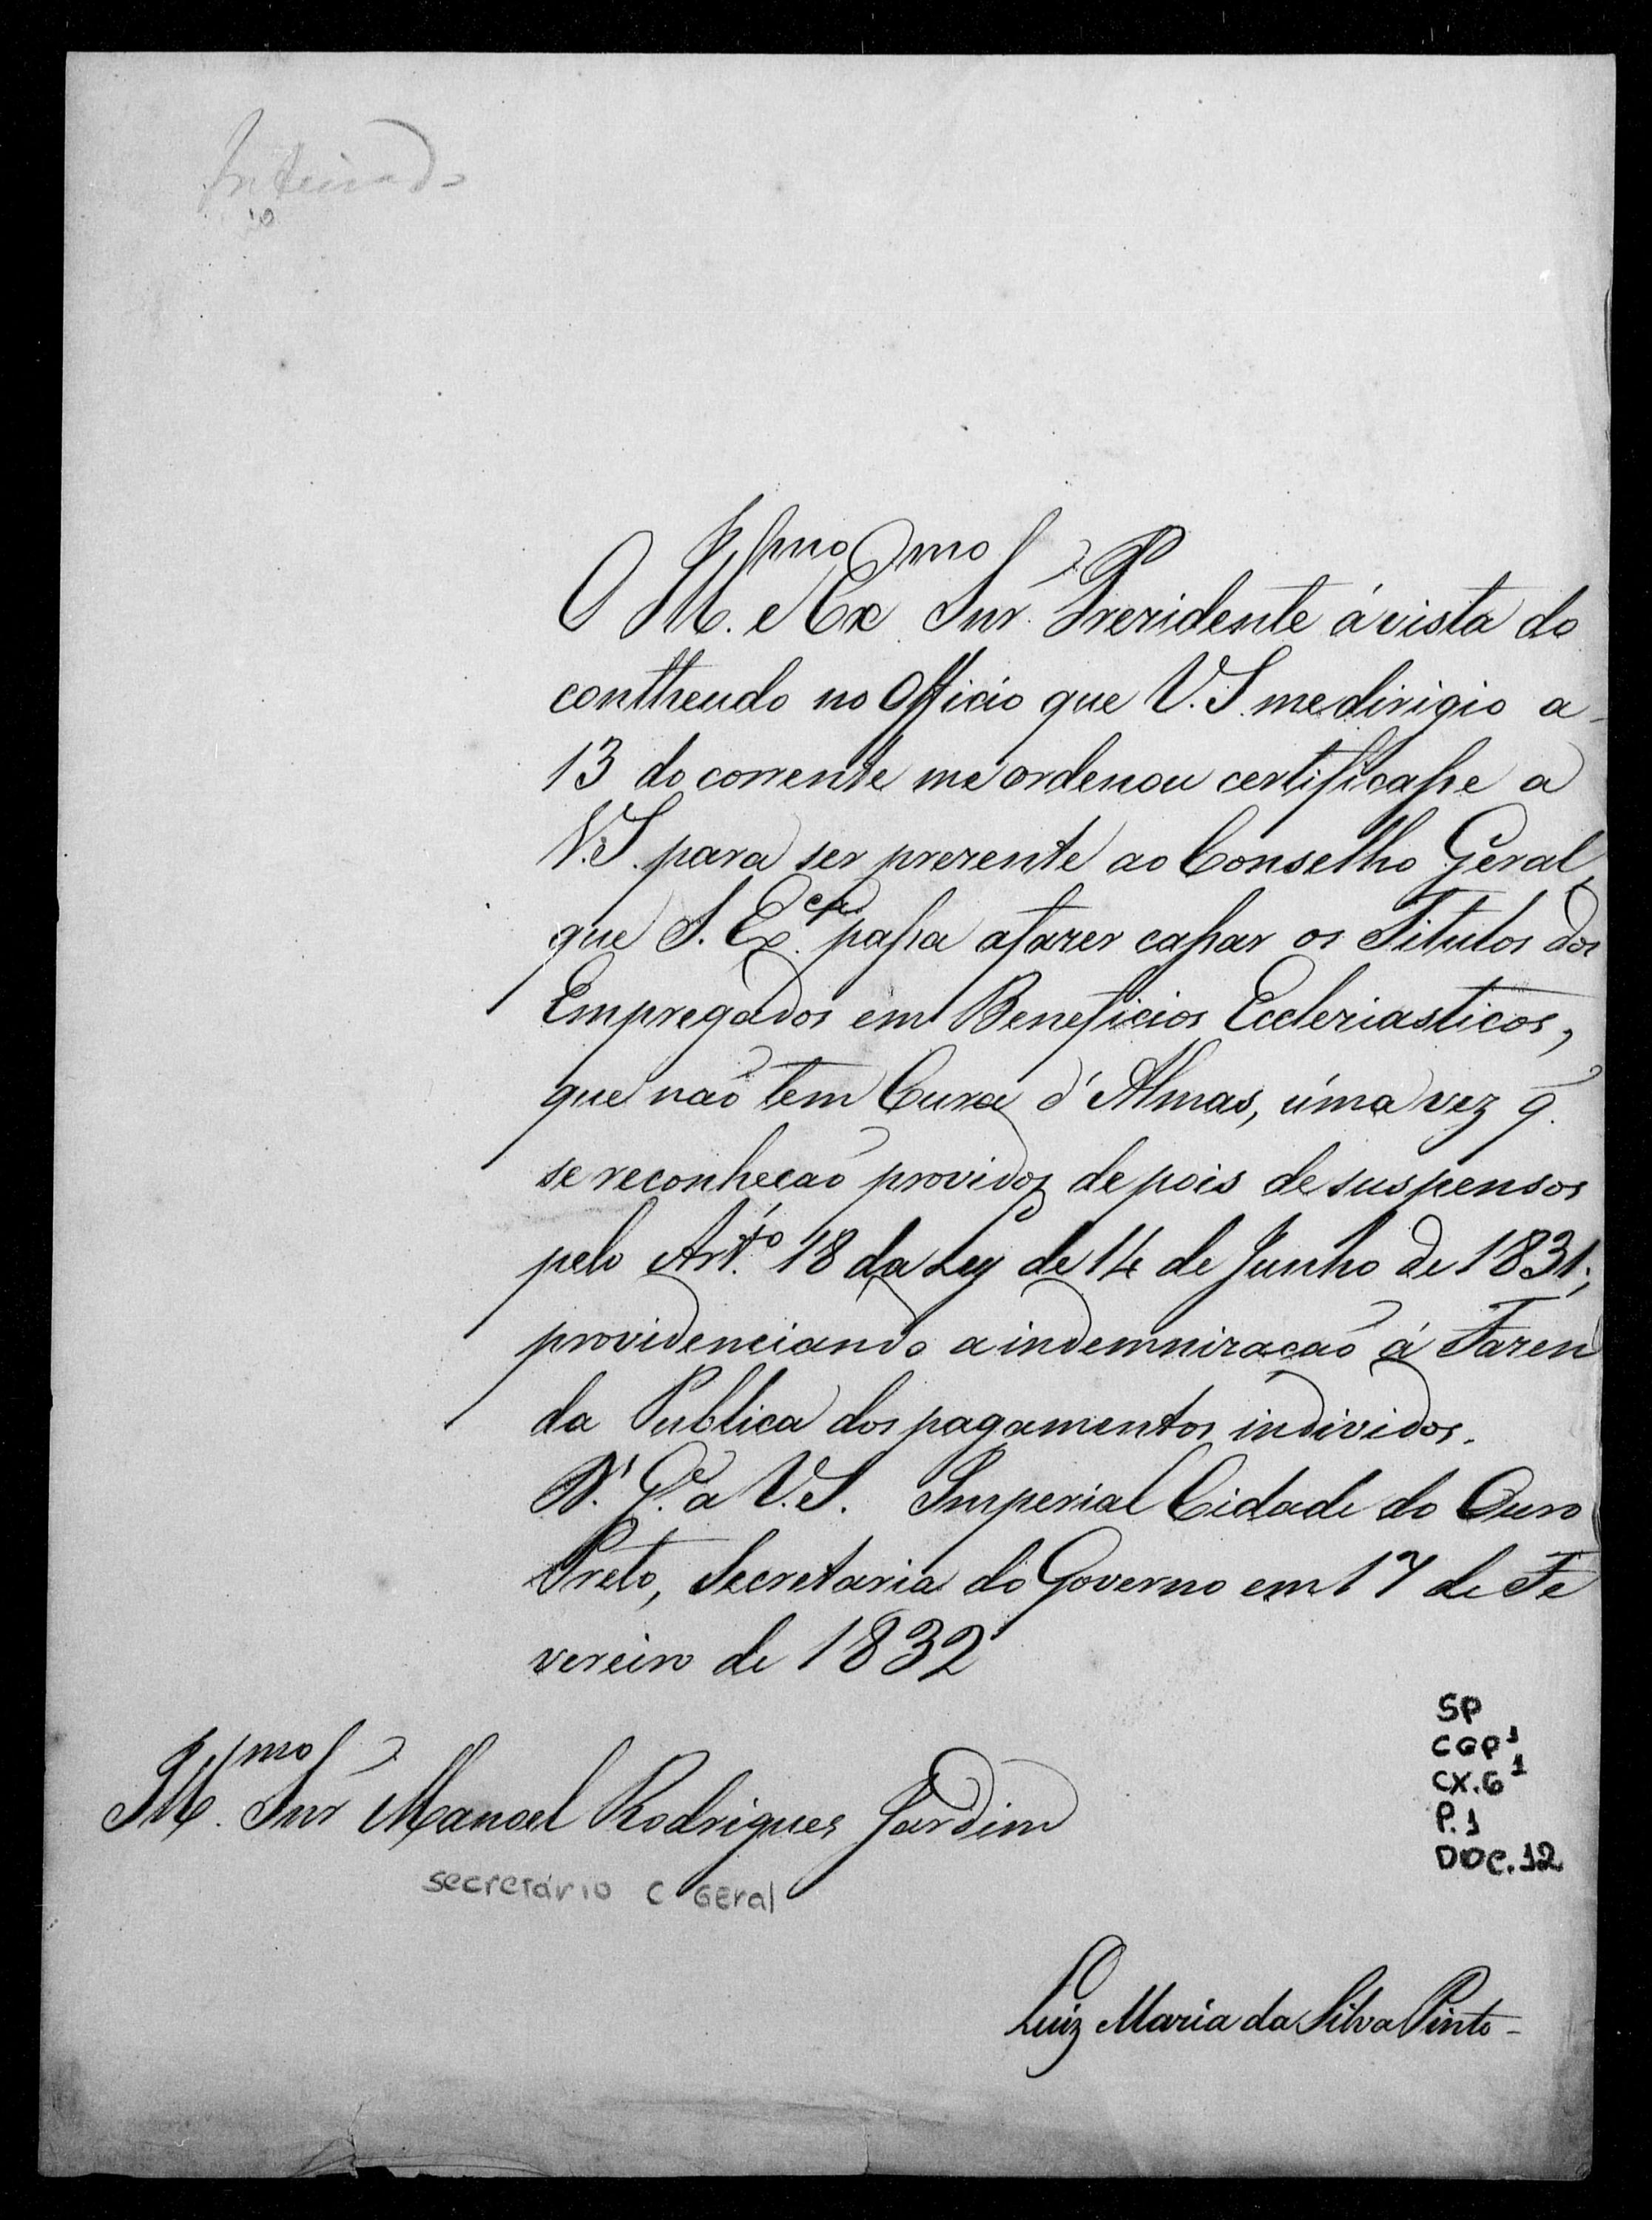 Inteirado
O Ill.mo e Ex.mo Snr. Prezidente á vista do
contheudo no Officio que V.S. me dirigio a
13 do corrente me ordenou certificasse a
V.S. para ser prezente ao Conselho Geral,
que S. Ex.cia passa a fazer cassar os Titulos dos
Empregados em Beneficios Eccleziasticos,
que naõ tem Cura d'Almas, úma vez q̃.
se reconheçaõ providos depois de suspensos
pelo Art.to 18 da Ley de 14 de Junho de 1831;
providenciando a indemnizaçaõ á Fazen
da Publica dos pagamentos individos.
D.s G.e a V.S. Imperial Cidade do Ouro
Preto, Secretaria do Governo em 17 de Fe
vereiro de 1832
Ill.mo Snr Manoel Rodrigues Jardim
secretário C GEral
SP
CGP1
CX.6
P.1
DOC.12
Luiz Maria da Silva Pinto-